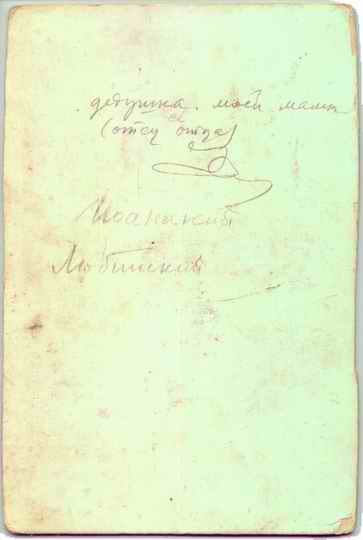 дедушка моей мамы
её
(отец отца)
Иоанникий
Любинский